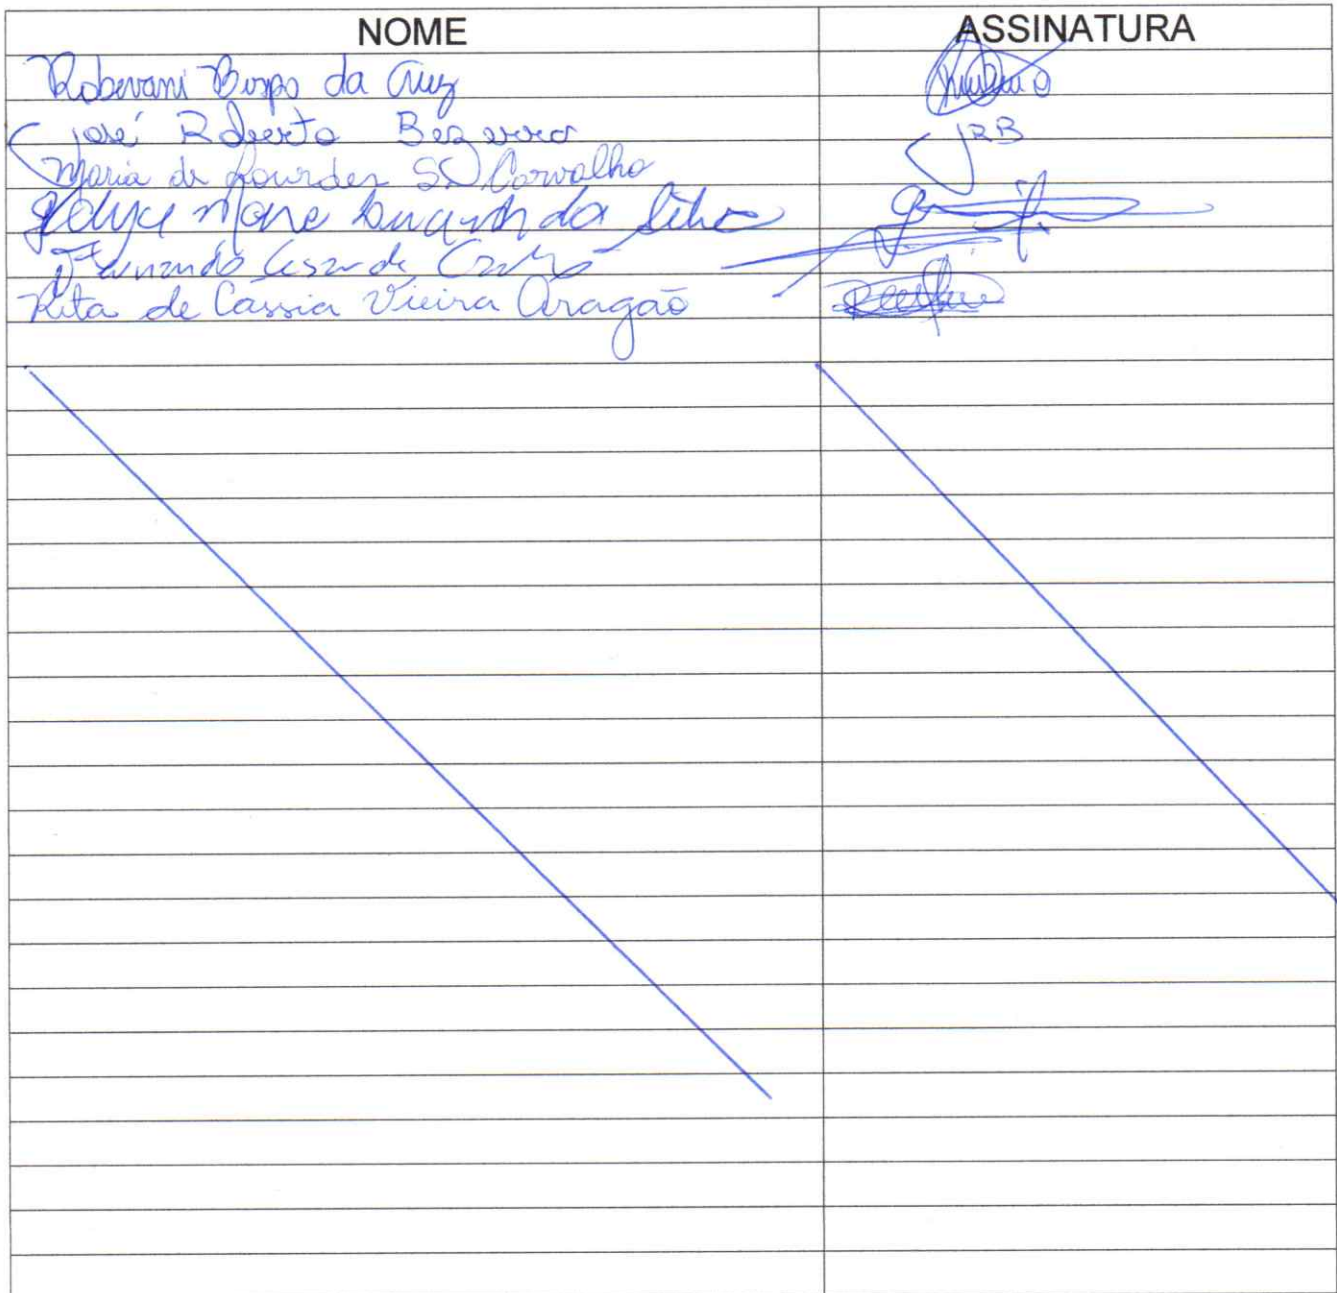 NOME ASSINATURA
Robevani Bispo da Cruz
José Roberto Bezerra JRB
Maria de Lourdes SS Carvalho
da Silva
Fernando Cesar de
Rita de Cássia Vieira Aragão